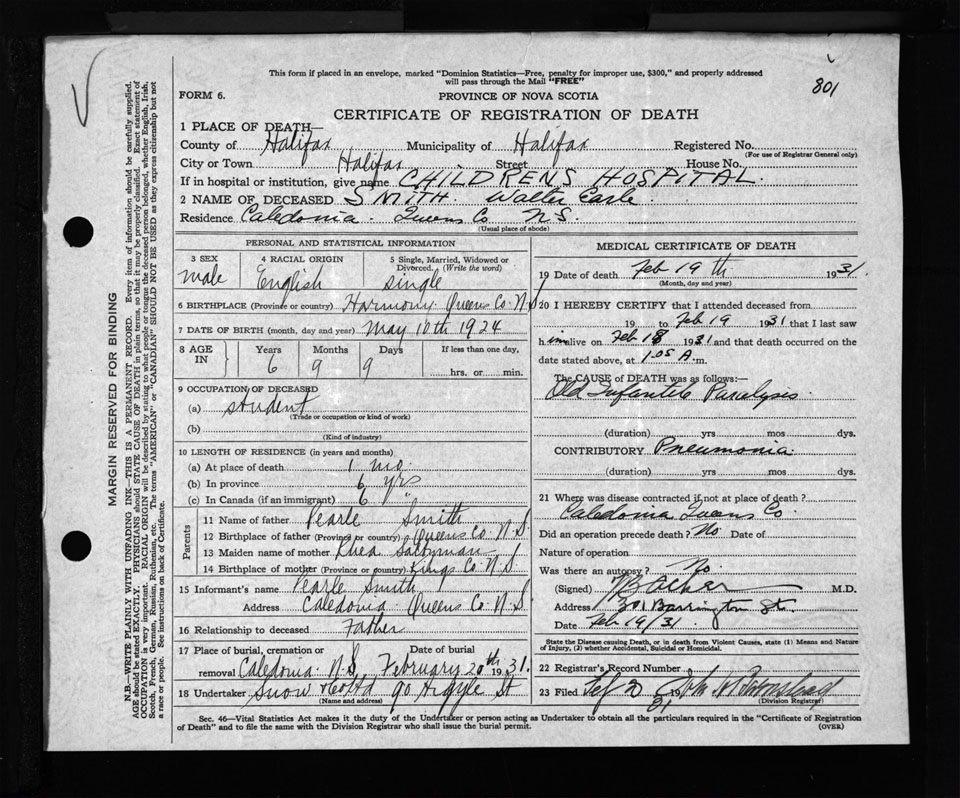 This form if placed in an envelope, marked "Dominion Statistics—Free, penalty for improper use, $300," and properly addressed
will pass through the Mail "FREE"
801
FORM 6.
PROVINCE OF NOVA SCOTIA
CERTIFICATE OF REGISTRATION OF DEATH
1 PLACE OF DEATH—
County of Halifax Municipality of Halifax Registered No.
(For use of Registrar General only)
City or Town Halifax Street House No.
If in hospital or institution, give name CHILDRENS HOSPITAL
2 NAME OF DECEASED SMITH Walter Earle
Residence Caledonia Queens Co N.S.
(Usual place of abode)
PERSONAL AND STATISTICAL INFORMATION
3 SEX 4 RACIAL ORIGIN 5 Single, Married, Widowed or
Divorced. (Write the word)
male English single
6 BIRTHPLACE (Province or country) Harmony Queens Co N.S.
7 DATE OF BIRTH (month, day and year) May 10th 1924
8 AGE IN Years Months Days If less than one day.
6 9 9 hrs. or min.
9 OCCUPATION OF DECEASED
(a) student
(Trade or occupation or kind of work)
(b)
(Kind of industry)
10 LENGTH OF RESIDENCE (in years and months)
(a) At place of death 1 mo.
(b) In province 6 yrs
(c) In Canada (if an immigrant) 6 "
Parents
11 Name of father Pearle Smith
12 Birthplace of father (Province or country) Queens Co N.S.
13 Maiden name of mother Rhea
14 Birthplace of mother (Province or country) Kings Co N.S.
15 Informant's name Pearle Smith
Address Caledonia Queens Co N.S.
16 Relationship to deceased Father
17 Place of burial, cremation or Date of burial
removal Caledonia N.S. February 20th 1931.
18 Undertaker Snow & Co Ltd 90 Argyle St
(Name and address)
MEDICAL CERTIFICATE OF DEATH
19 Date of death Feb 19th 1931
(Month, day and year)
20 I HEREBY CERTIFY that I attended deceased from
19 to Feb 19 1931 that I last saw
him alive on Feb 18 1931 and that death occurred on the
date stated above, at 1.05 A. m.
The CAUSE of DEATH was as follows:—
Old Infantile Paralysis
(duration) yrs mos dys.
CONTRIBUTORY Pneumonia
(duration) yrs mos dys.
21 Where was disease contracted if not at place of death?
Caledonia Queens Co
Did an operation precede death? No Date of
Nature of operation
Was there an autopsy? No.
(Signed) M.D.
Address 301 Barrington St.
Date Feb 19/31
State the Disease causing Death, or in death from Violent Causes, state (1) Means and Nature
of Injury, (2) whether Accidental, Suicidal or Homicidal.
22 Registrar's Record Number
23 Filed Feb 20 19 31
(Division Registrar)
Sec. 46—Vital Statistics Act makes it the duty of the Undertaker or person acting as Undertaker to obtain all the particulars required in the "Certificate of Registration
of Death" and to file the same with the Division Registrar who shall issue the burial permit. (OVER)
MARGIN RESERVED FOR BINDING
N.B.—WRITE PLAINLY WITH UNFADING INK—THIS IS A PERMANENT RECORD. Every item of information should be carefully supplied.
AGE should be stated EXACTLY. PHYSICIANS should STATE CAUSE OF DEATH in plain terms, so that it may be properly classified. Exact statement of
OCCUPATION is very important. RACIAL ORIGIN will be described by stating to what people or tongue the deceased person belonged, whether English, Irish,
Scotch, French, German, Russian, Ruthenian, etc. The terms "AMERICAN" or "CANADIAN" SHOULD NOT BE USED as they express citizenship but not
a race or people. See instructions on back of Certificate.